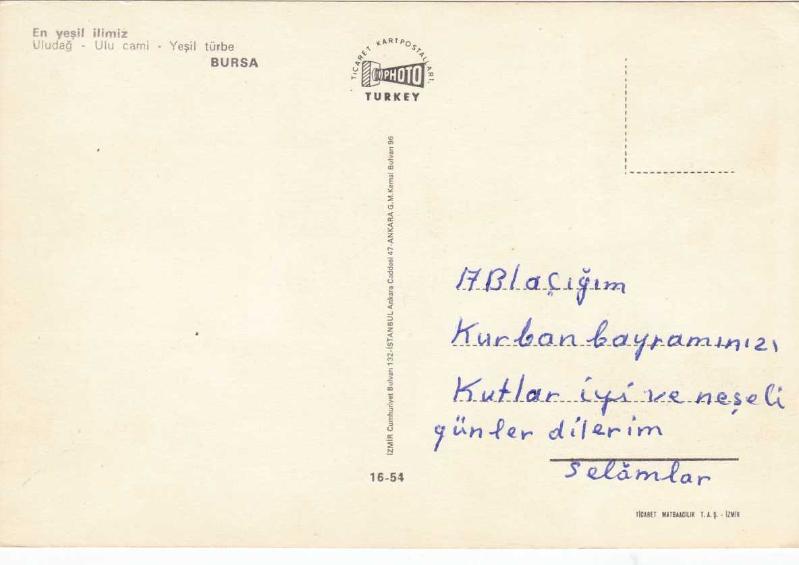 En yeşil ilimiz
Uludağ - Ulu cami - Yeşil türbe
BURSA
TİCARET KARTPOSTALLARI
PHOTO
TURKEY
İZMİR Cumhuriyet Bulvarı 132-İSTANBUL Ankara Caddesi 47-ANKARA G.M.Kemal Bulvarı 96
ABlaçığım
Kurban bayramınızı
Kutlar iyi ve neşeli
günler dilerim
Selâmlar
16-54
TİCARET MATBAACILIK T.A.Ş. - İZMİR